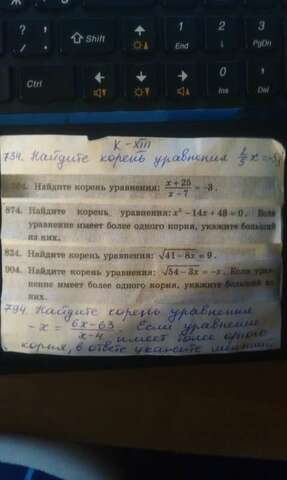 ? /
&
7
8
9
Shift
End
PgDn
Ctrl
0
Ins
Del
К - XIII
734. Найдите корень уравнения
Найдите корень уравнения: (x + 25)/(x − 7) = −3.
874. Найдите корень уравнения: x² − 14x + 48 = 0. Если
уравнение имеет более одного корня, укажите больший
из них.
824. Найдите корень уравнения: √(41 − 8x) = 9.
904. Найдите корень уравнения: √(54 − 3x) = −x. Если урав-
нение имеет более одного корня, укажите больший из
них.
794. Найдите корень уравнения
−x = (6x−63)/(x−4). Если уравнение
имеет более одного
корня, в ответе укажите меньший